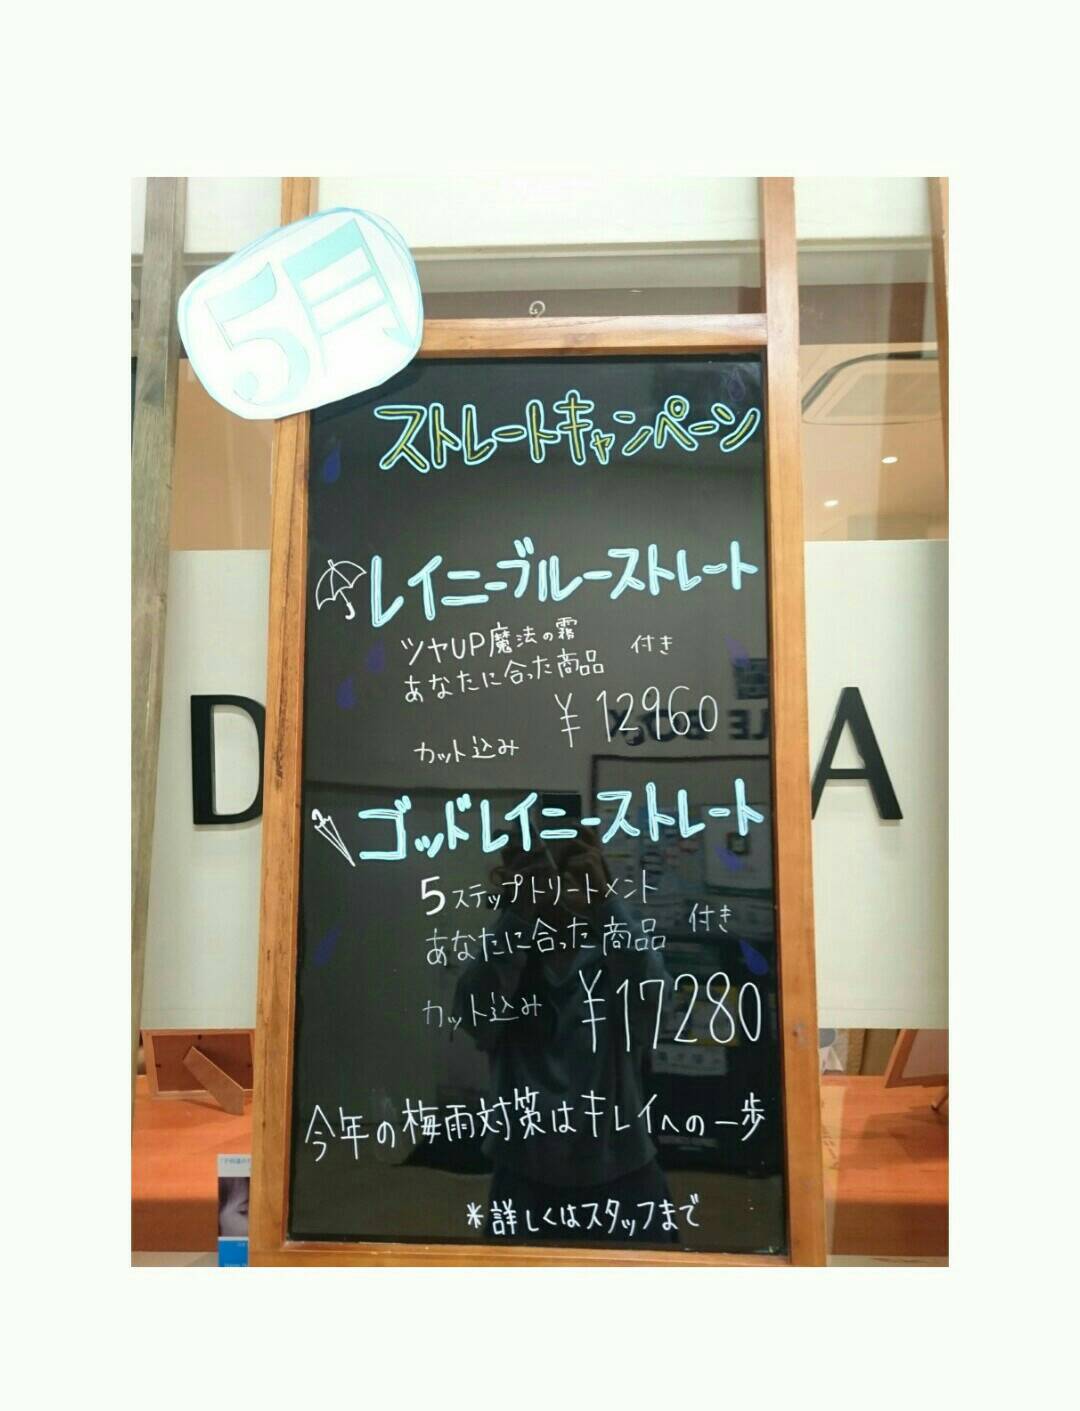 5月
ストレートキャンペーン
レイニーブルーストレート
ツヤUP魔法の霧
あなたに合った商品 付き
カット込み ¥12960
D A
ゴッドレイニーストレート
5ステップトリートメント
あなたに合った商品 付き
カット込み ¥17280
今年の梅雨対策はキレイへの一歩
*詳しくはスタッフまで